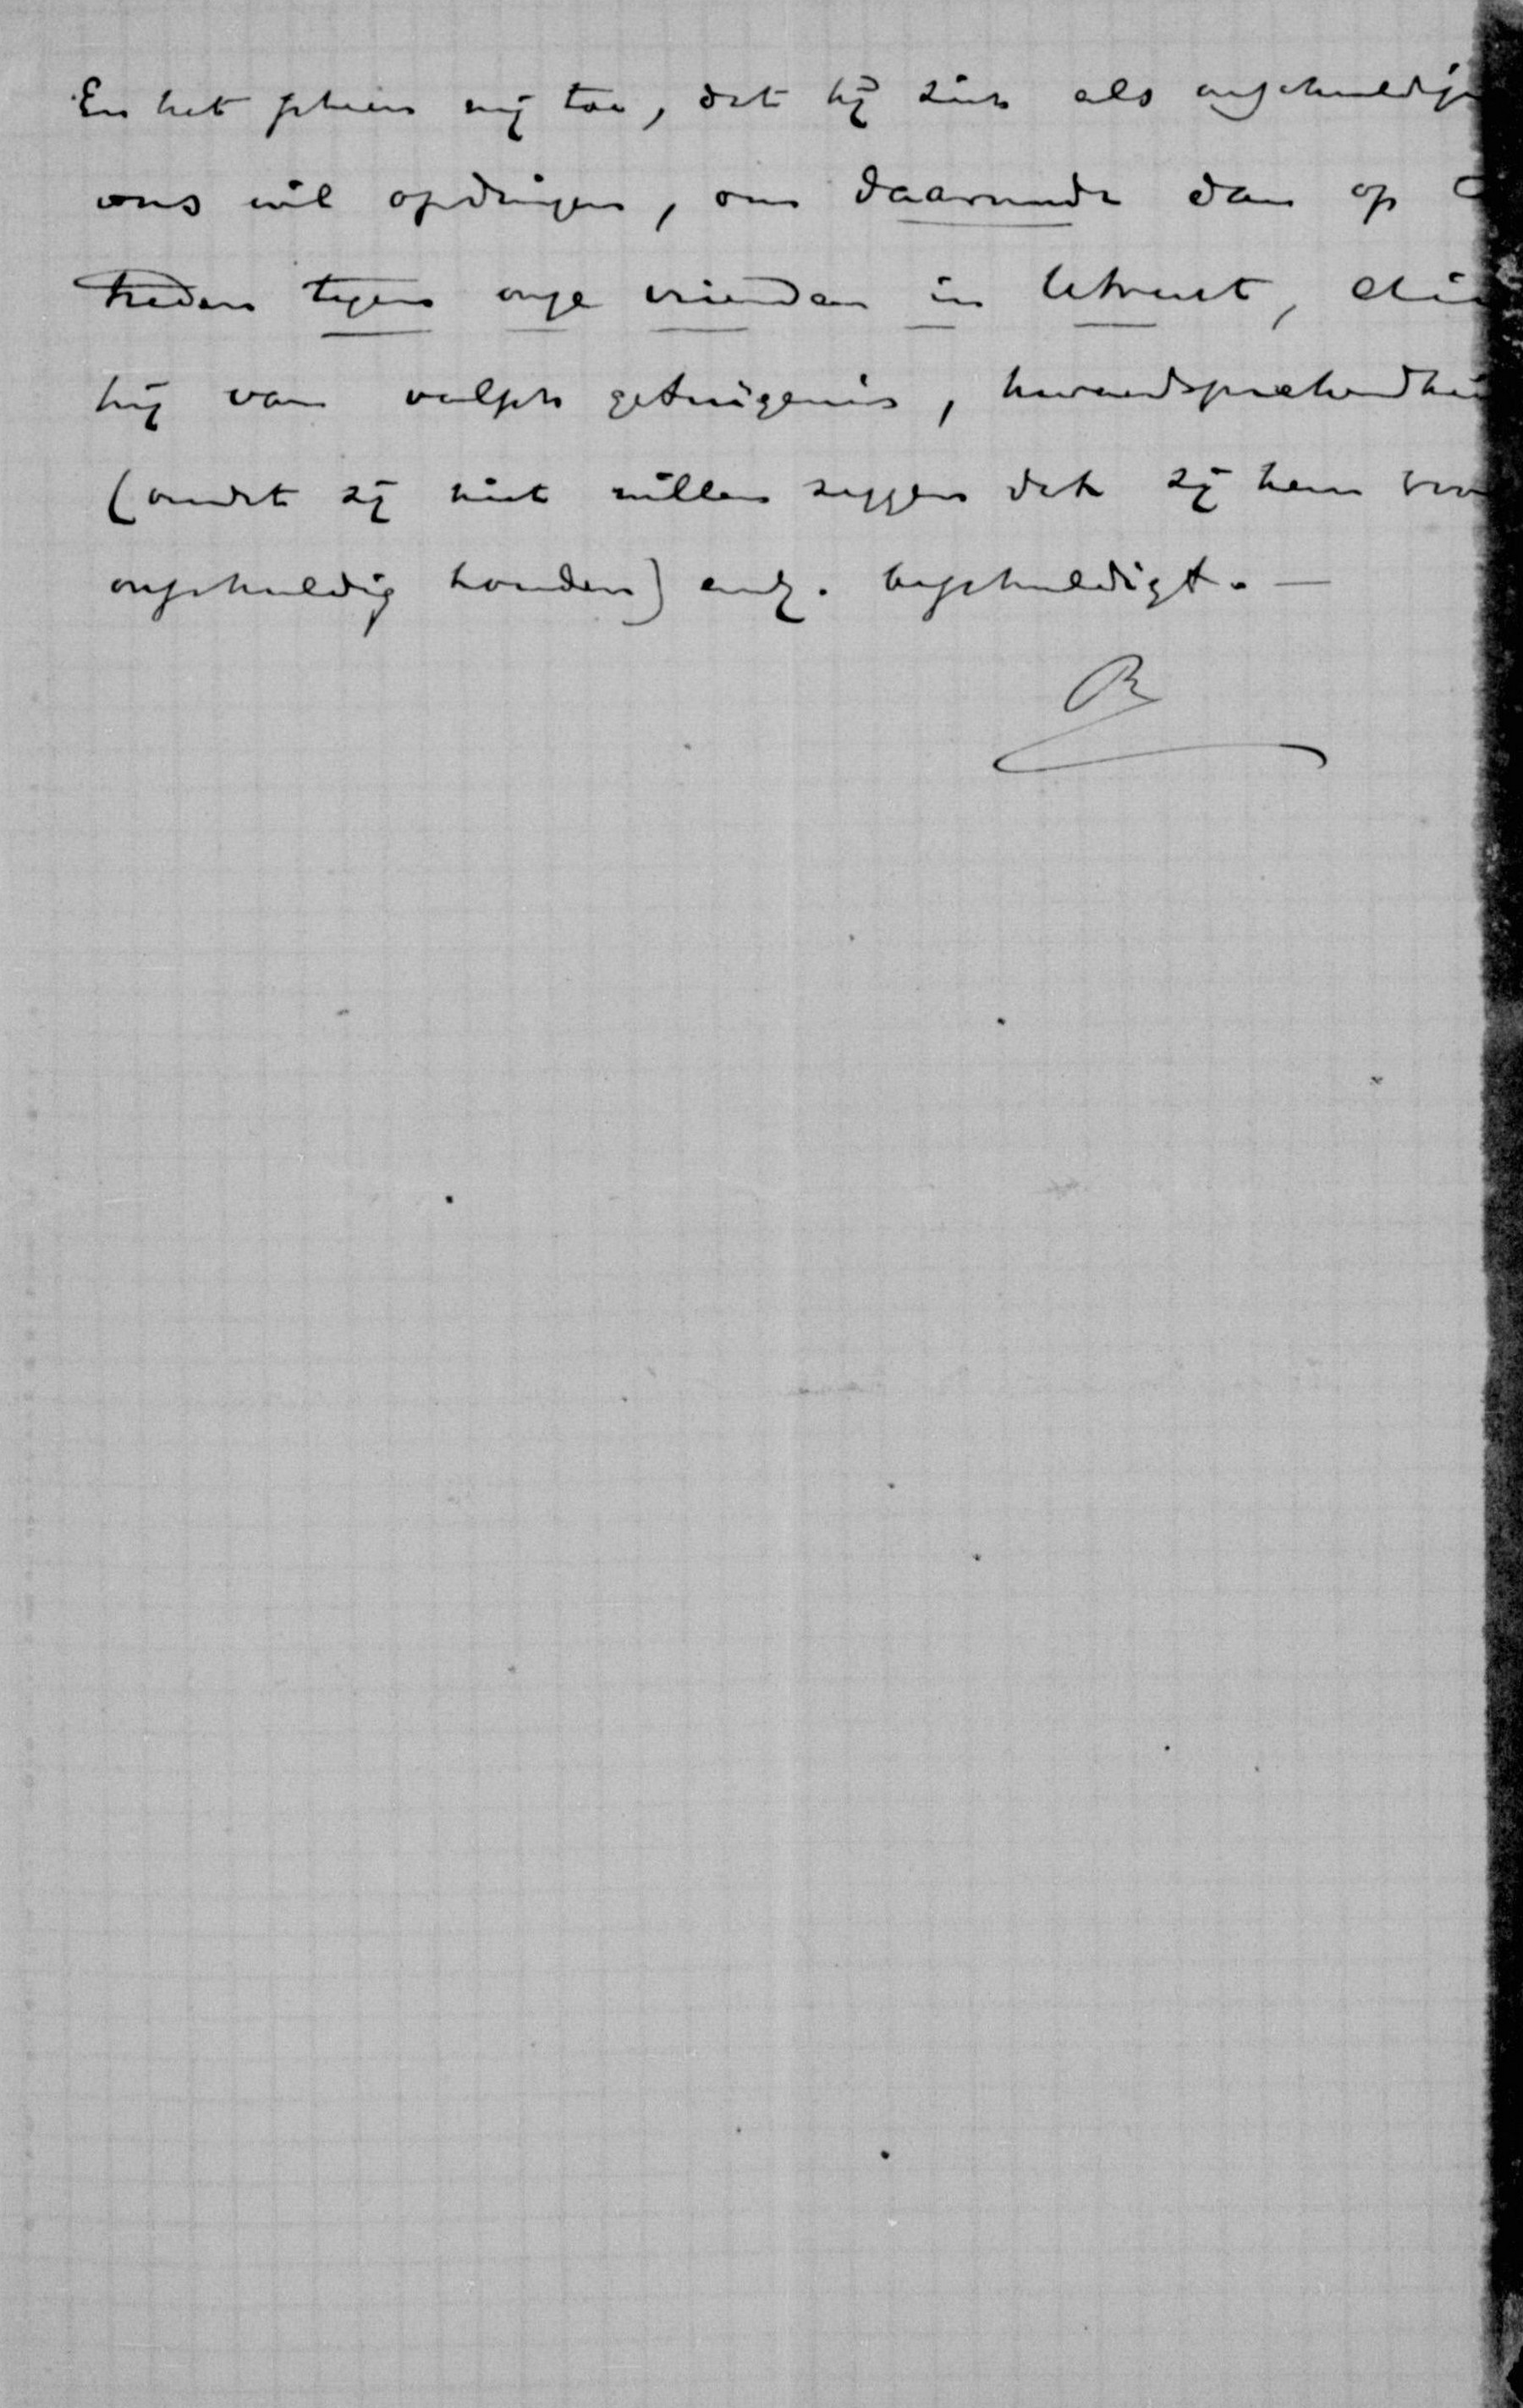 En het scheen mij toe, dat hij zich als onschuldige
ons wil opdringen, om daarmede dan op
treden tegen onze vrienden in Utrecht, die
hij van valsch getuigenis, kwaadsprekendhei
(omdat zij niet willen zeggen dat zij hem voor
onschuldig houden) enz. beschuldigt. —
B